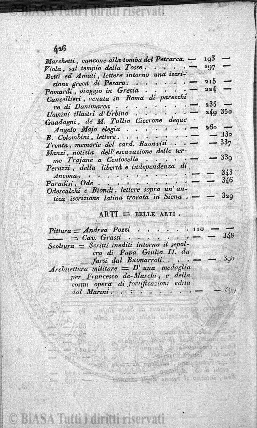 426
Marchetti, canzone alla tomba del Petrarca. — 193 —
Viola, sul tempio della Tosse. — 197 —
Betti ed Amati, lettere intorno una iscri-
zione greca di Pesaro. — 215 —
Pomardi, viaggio in Grecia — 224 —
Cancellieri, venuta in Roma di parecchi
re di Danimarca — 235 —
Uomini illustri d'Urbino — 249 350
Guadagni, de M. Tullio Cicerone deque
Angelo Majo elegia — 260 —
B. Colombini, lettere. — 132
Trento, memoria del card. — 337
notizia dell' escavazione delle ter-
me Trajane a Centocelle — 339
Perazzi, della libertà e independenza di
Ancona. — 343
Paradisi, Ode — 346
Odescalchi e Biondi, lettere sopra un' an-
tica iscrizione latina trovata in Siena — 329
ARTI = BELLE ARTI.
Pittura = Andrea Pozzi 120 —
= Cav. Grassi — 348
Scoltura = Scritti inediti intorno al sepol-
cro di Papa Giulio II. da
farsi dal Buonarroti.
Architettura militare = D' una medaglia
per Francesco de-Marchi, e della
opera di fortificazioni edita
dal Marini
© BIASA Tutti i diritti riservati